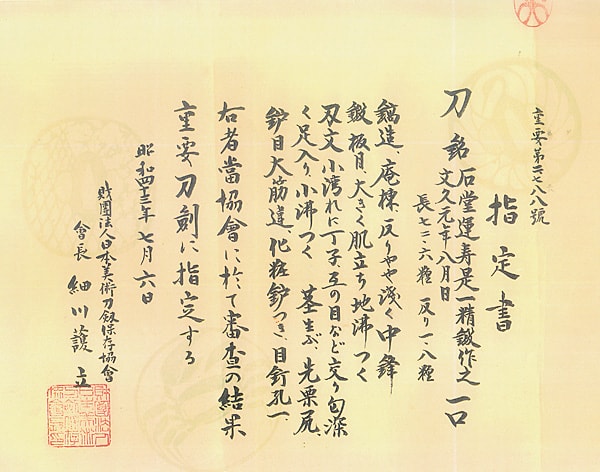 重要第二七八八號
指定書
刀 銘 石堂運寿是一精鍛作之 一口
文久元年八月日
長七二・六糎 反り一・八糎
鎬造、庵棟、反りやや浅く中鋒
鍛 板目、大きく肌立ち地沸つく
刃文 小湾れに丁子互の目など交り匂深
く足入り、小沸つく 茎生ぶ、先栗尻、
鑢目大筋違化粧鑢つき、目釘孔一、
右者當協會に於て審査の結果
重要刀剣に指定する
昭和四十三年七月六日
財團法人日本美術刀剣保存協會
會長 細川護立